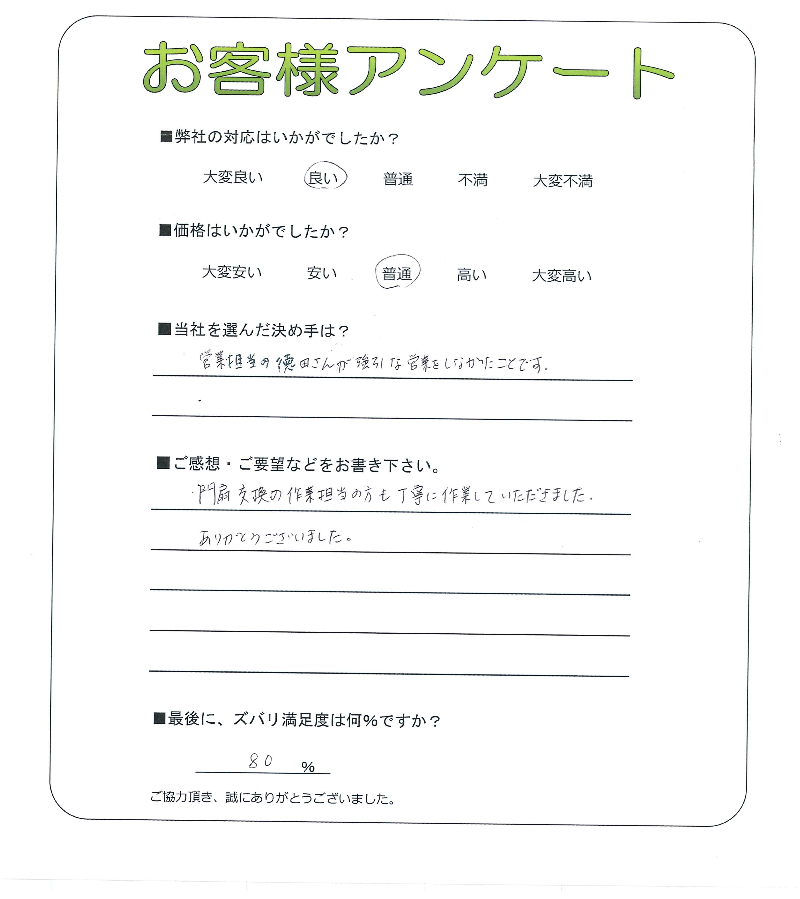 お客様アンケート
■弊社の対応はいかがでしたか？
大変良い 良い 普通 不満 大変不満
■価格はいかがでしたか？
大変安い 安い 普通 高い 大変高い
■当社を選んだ決め手は？
営業担当の徳田さんが強引な営業をしなかたことです.
■ご感想・ご要望などをお書き下さい。
門扉交換の作業担当の方も丁寧に作業していただきました.
ありがとうございました。
■最後に、ズバリ満足度は何%ですか？
80 %
ご協力頂き、誠にありがとうございました。